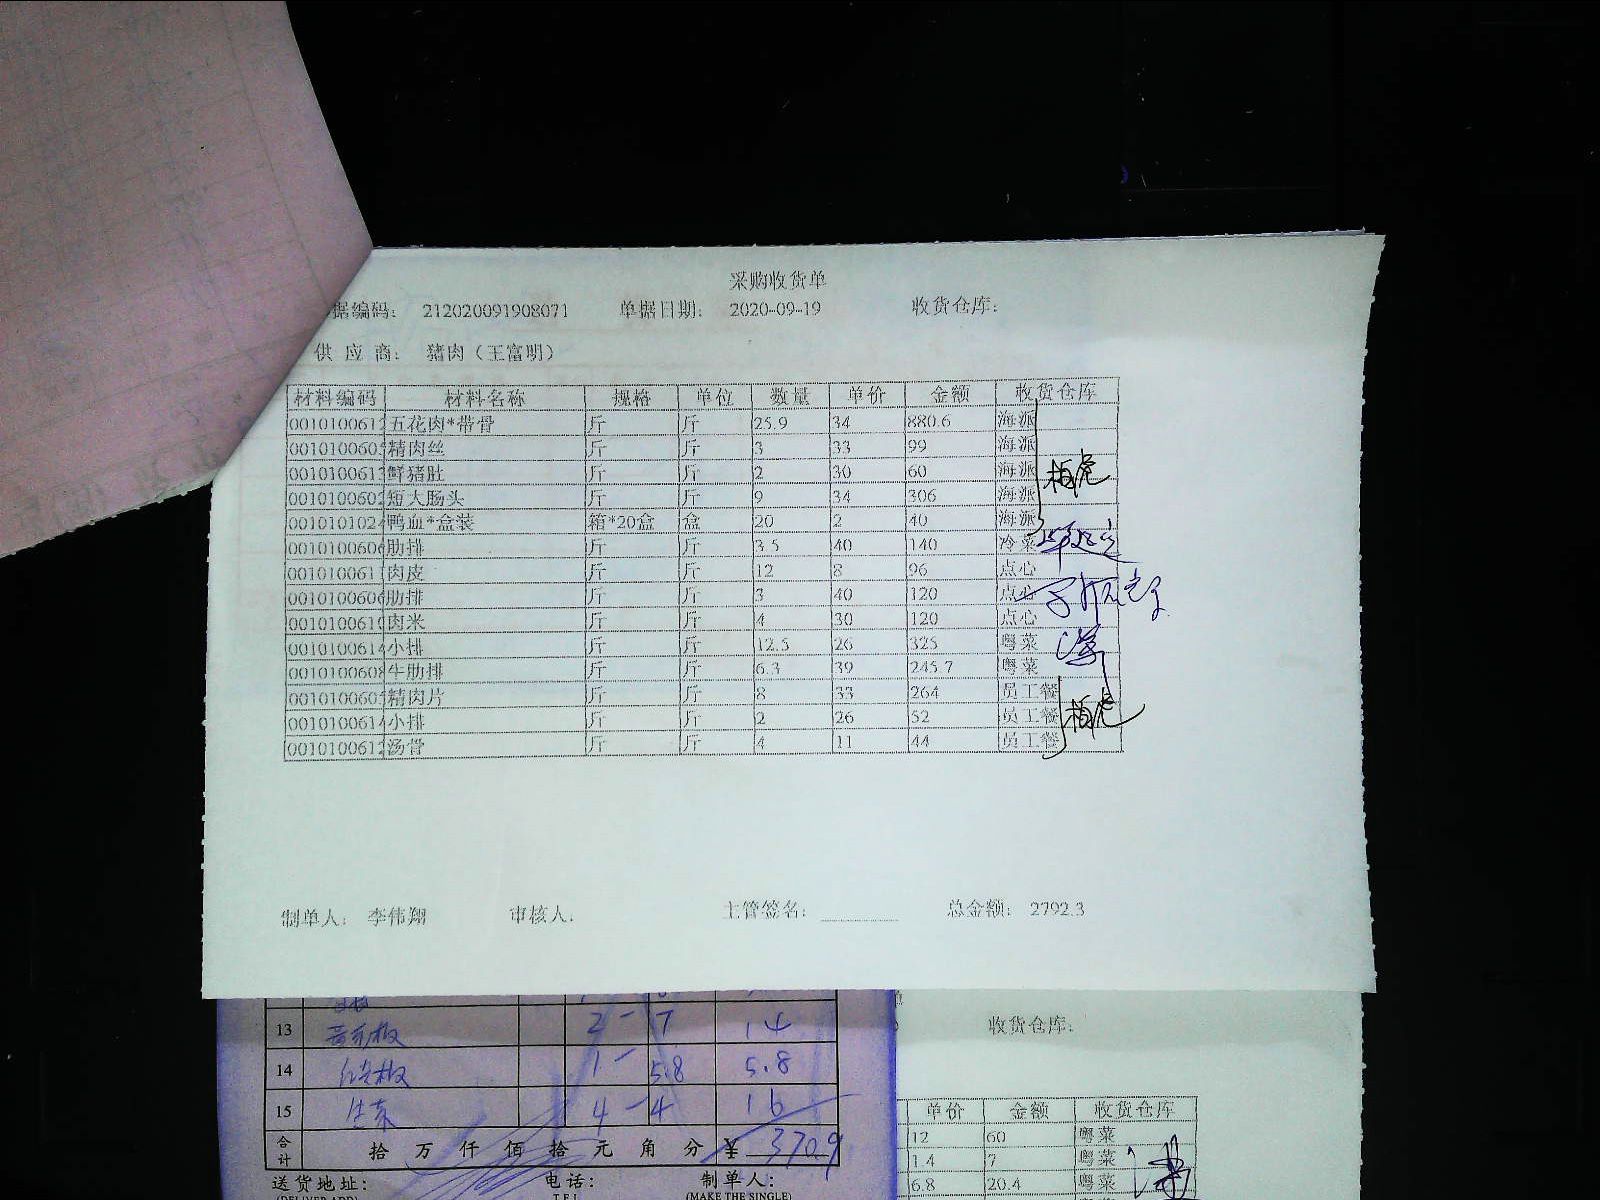 采购收货单
据编码: 212020091908071 单据日期: 2020-09-19 收货仓库:
供 应 商: 猪肉（王富明）
材料编码 材料名称 规格 单位 数量 单价 金额 收货仓库
0010100612 五花肉*带骨 斤 斤 25.9 34 880.6 海派
001010060 精肉丝 斤 斤 3 33 99 海派
001010061 鲜猪肚 斤 斤 2 30 60 海派
001010060 短大肠头 斤 斤 9 34 306 海派
001010102 鸭血*盒装 箱*20盒 盒 20 2 40 海派
001010060 肋排 斤 斤 3.5 40 140 冷菜
001010061 肉皮 斤 斤 12 8 96 点心
001010060 肋排 斤 斤 3 40 120 点心
001010061 肉米 斤 斤 4 30 120 点心
001010061 小排 斤 斤 12.5 26 325 粤菜
001010060 牛肋排 斤 斤 6.3 39 245.7 粤菜
001010060 精肉片 斤 斤 8 33 264 员工餐
001010061 小排 斤 斤 2 26 52 员工餐
001010061 汤骨 斤 斤 4 11 44 员工餐
制单人: 李伟翔 审核人: 主管签名: 总金额: 2792.3
13 2- 7 14
14 1- 5.8 5.8
15 4- 4 16
合计 拾 万 仟 佰 拾 元 角 分 ¥ 370.9
送货地址: 电话: 制单人:
(DELIVER ADD) TEL (MAKE THE SINGLE)
收货仓库:
单价 金额 收货仓库
12 60 粤菜
1.4 7 粤菜
6.8 20.4 粤菜